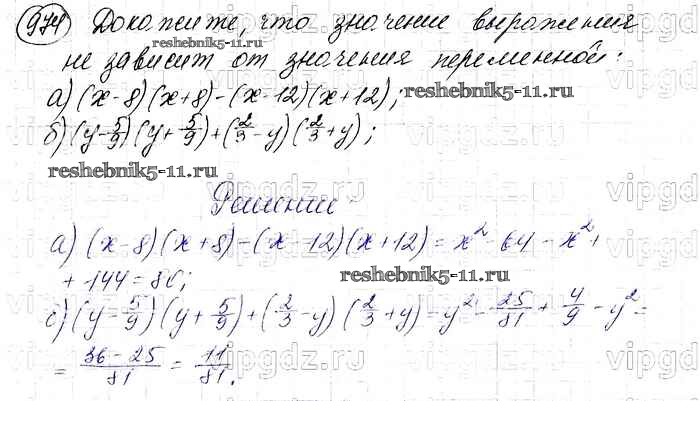 974 Докажите, что значение выражения
reshebnik5-11.ru
не зависит от значения переменной:
а) (x-8)(x+8)-(x-12)(x+12); reshebnik5-11.ru
б) (y-5/9)(y+5/9)+(2/3-y)(2/3+y);
reshebnik5-11.ru
vipgdz.ru
Решение
vipgdz.ru
а) (x-8)(x+8)-(x-12)(x+12)=x² 64-x²+
+144=80;
reshebnik5-11.ru
с) (y-5/9)(y+5/9)+(2/3-y)(2/3+y)=y²-25/81+4/9-y²=
= 36-25/81 = 11/81.
vipgdz.ru